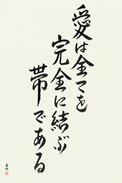 愛は全てを
完全に結ぶ
帯である